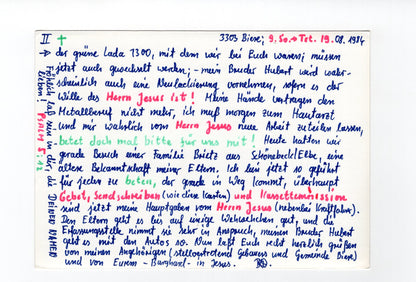 II † 3303 Biese; 9. So. → Tr. 19.08.1984
der grüne Lada 1300, mit dem wir bei Euch waren; müssen
jetzt auch gewechselt werden; – mein Bruder Hubert wird wahr-
scheinlich auch eine Neulackierung vornehmen, sofern es der
Wille des Herrn Jesus ist! Meine Hände vertragen den
Metallberuf nicht mehr, ich muß morgen zum Hautarzt
und mir wahrlich vom Herrn Jesus neue Arbeit zuteilen lassen,
betet doch mal bitte für uns mit! Heute hatten wir
gerade Besuch einer Familie Brietz aus Schönebeck/Elbe, eine
ältere Bekanntschaft meiner Eltern. Ich bin jetzt so geführt
für jeden zu beten, der gerade in Weg kommt, überhaupt
Gebet, Sendschreiben (wie diese Karten) und Kassettenmission
sind jetzt meine Hauptgaben vom Herrn Jesus (nebenbei Kraftfahrer).
Den Eltern geht es bis auf einige Wehwehchen gut, und die
Erfassungsstelle nimmt sie sehr in Anspruch, meinen Bruder Hubert
geht es mit den Autos so. Nun seid Euch recht herzlich grüßen
von meinen Angehörigen (stellvertretend Gebauers und Gemeinde Biese)
und von Eurem – Burghard – in Jesus.
Fröhlich laß sein in dir, die DEINEN NAMEN
lieben! Psalm 5:12